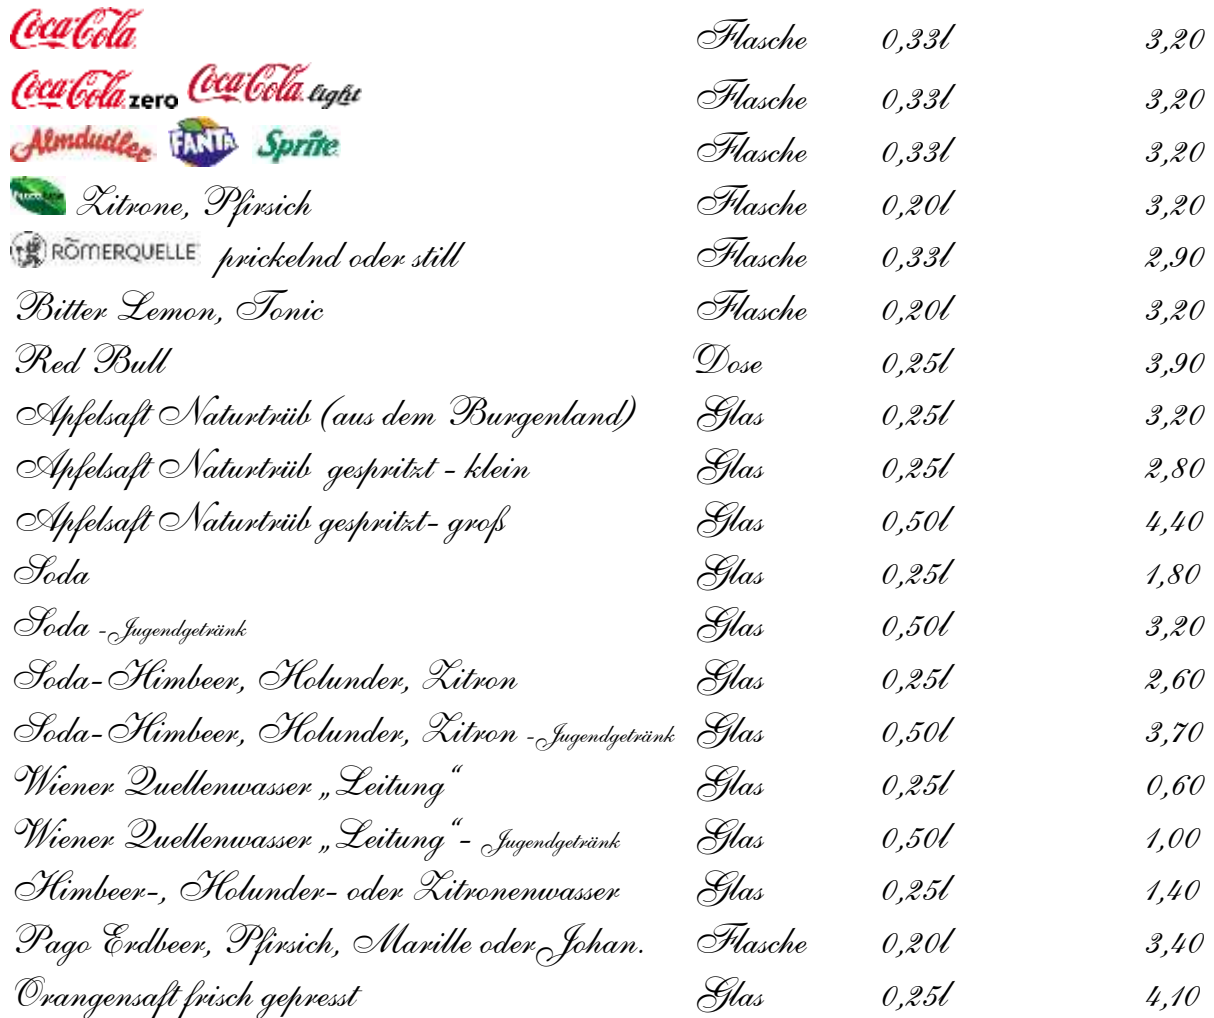 Coca-Cola Flasche 0,33l 3,20
Coca-Cola zero Coca-Cola light Flasche 0,33l 3,20
Almdudler FANTA Sprite Flasche 0,33l 3,20
Zitrone, Pfirsich Flasche 0,20l 3,20
RÖMERQUELLE prickelnd oder still Flasche 0,33l 2,90
Bitter Lemon, Tonic Flasche 0,20l 3,20
Red Bull Dose 0,25l 3,90
Apfelsaft Naturtrüb (aus dem Burgenland) Glas 0,25l 3,20
Apfelsaft Naturtrüb gespritzt - klein Glas 0,25l 2,80
Apfelsaft Naturtrüb gespritzt- groß Glas 0,50l 4,40
Soda Glas 0,25l 1,80
Soda - Jugendgetränk Glas 0,50l 3,20
Soda-Himbeer, Holunder, Zitron Glas 0,25l 2,60
Soda-Himbeer, Holunder, Zitron - Jugendgetränk Glas 0,50l 3,70
Wiener Quellenwasser „Leitung“ Glas 0,25l 0,60
Wiener Quellenwasser „Leitung“- Jugendgetränk Glas 0,50l 1,00
Himbeer-, Holunder- oder Zitronenwasser Glas 0,25l 1,40
Pago Erdbeer, Pfirsich, Marille oder Johan. Flasche 0,20l 3,40
Orangensaft frisch gepresst Glas 0,25l 4,10